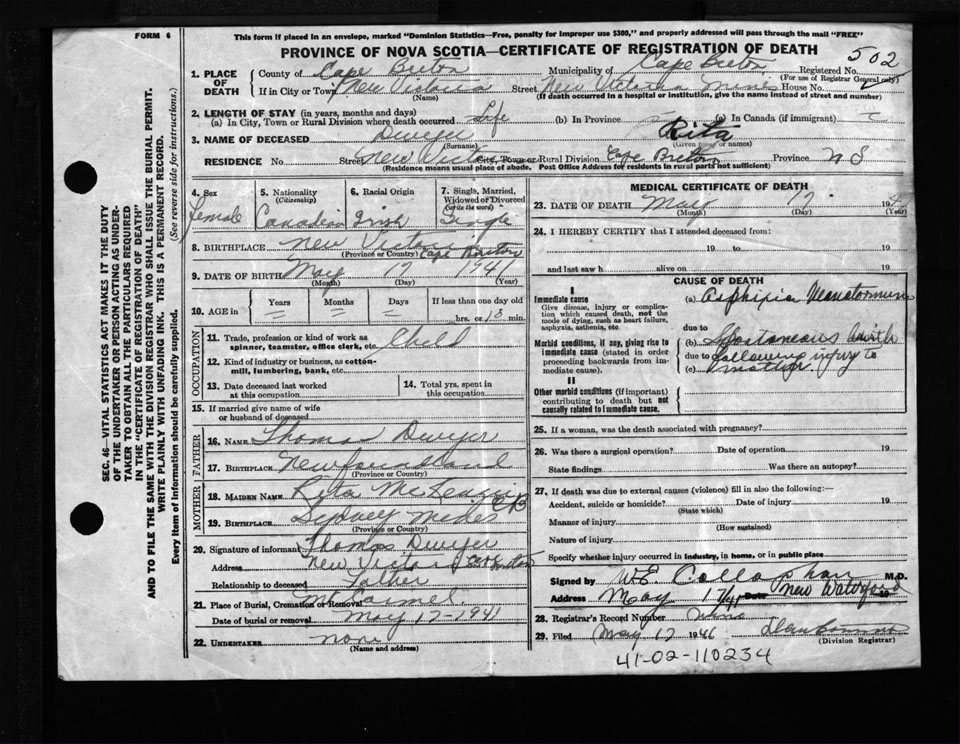 FORM 6
This form if placed in an envelope, marked "Dominion Statistics—Free, penalty for improper use $300," and properly addressed will pass through the mail "FREE"
PROVINCE OF NOVA SCOTIA—CERTIFICATE OF REGISTRATION OF DEATH
502
1. PLACE OF DEATH
County of Cape Breton Municipality of Cape Breton Registered No.
(For use of Registrar General only)
If in City or Town New Victoria Street New Victoria Mines House No.
(Name) (If death occurred in a hospital or institution, give the name instead of street and number)
2. LENGTH OF STAY (in years, months and days)
(a) In City, Town or Rural Division where death occurred Life (b) In Province (c) In Canada (if immigrant)
3. NAME OF DECEASED Dwyer Rita
(Surname) (Given name or names)
RESIDENCE No. Street New Victoria City, Town or Rural Division Cape Breton Province N S
(Residence means usual place of abode. Post Office Address for residents in rural parts not sufficient)
4. Sex Female
5. Nationality (Citizenship) Canadian
6. Racial Origin Irish
7. Single, Married, Widowed or Divorced (write the word) Single
8. BIRTHPLACE New Victoria Cape Breton
(Province or Country)
9. DATE OF BIRTH May 17 1941
(Month) (Day) (Year)
10. AGE in Years Months Days If less than one day
hrs. or 18 min.
OCCUPATION
11. Trade, profession or kind of work as spinner, teamster, office clerk, etc. Child
12. Kind of industry or business, as cotton-mill, lumbering, bank, etc.
13. Date deceased last worked at this occupation
14. Total yrs. spent in this occupation
15. If married give name of wife or husband of deceased
FATHER
16. NAME Thomas Dwyer
17. BIRTHPLACE Newfoundland
(Province or Country)
MOTHER
18. MAIDEN NAME Rita
19. BIRTHPLACE Sydney Mines CB
(Province or Country)
20. Signature of informant Thomas Dwyer
Address New Victoria Cape Breton
Relationship to deceased Father
21. Place of Burial, Cremation or Removal Mt Carmel
Date of burial or removal May 17 1941
22. UNDERTAKER none
(Name and address)
MEDICAL CERTIFICATE OF DEATH
23. DATE OF DEATH May 17 19
(Month) (Day) (Year)
24. I HEREBY CERTIFY that I attended deceased from:
19 to 19
and last saw h alive on 19
CAUSE OF DEATH
I
Immediate cause
Give disease, injury or complication which caused death, not the mode of dying, such as heart failure, asphyxia, asthenia, etc.
(a)
due to
Morbid conditions, if any, giving rise to immediate cause (stated in order proceeding backwards from immediate cause).
(b) Spontaneous birth
due to
(c) following injury to
mother.
II
Other morbid conditions (if important) contributing to death but not causally related to immediate cause.
25. If a woman, was the death associated with pregnancy?
26. Was there a surgical operation? Date of operation 19
State findings Was there an autopsy?
27. If death was due to external causes (violence) fill in also the following:—
Accident, suicide or homicide? Date of injury 19
(State which)
Manner of injury
(How sustained)
Nature of injury
Specify whether injury occurred in industry, in home, or in public place
Signed by W E Callaghan M.D.
Address New Waterford
May 17/41 Date 19
28. Registrar's Record Number
29. Filed May 17 1946
(Division Registrar)
41-02-110234
SEC. 46 — VITAL STATISTICS ACT MAKES IT THE DUTY
OF THE UNDERTAKER OR PERSON ACTING AS UNDER-
TAKER TO OBTAIN ALL THE PARTICULARS REQUIRED
IN THE "CERTIFICATE OF REGISTRATION OF DEATH"
AND TO FILE THE SAME WITH THE DIVISION REGISTRAR WHO SHALL ISSUE THE BURIAL PERMIT.
WRITE PLAINLY WITH UNFADING INK. THIS IS A PERMANENT RECORD.
Every item of Information should be carefully supplied. (See reverse side for instructions.)